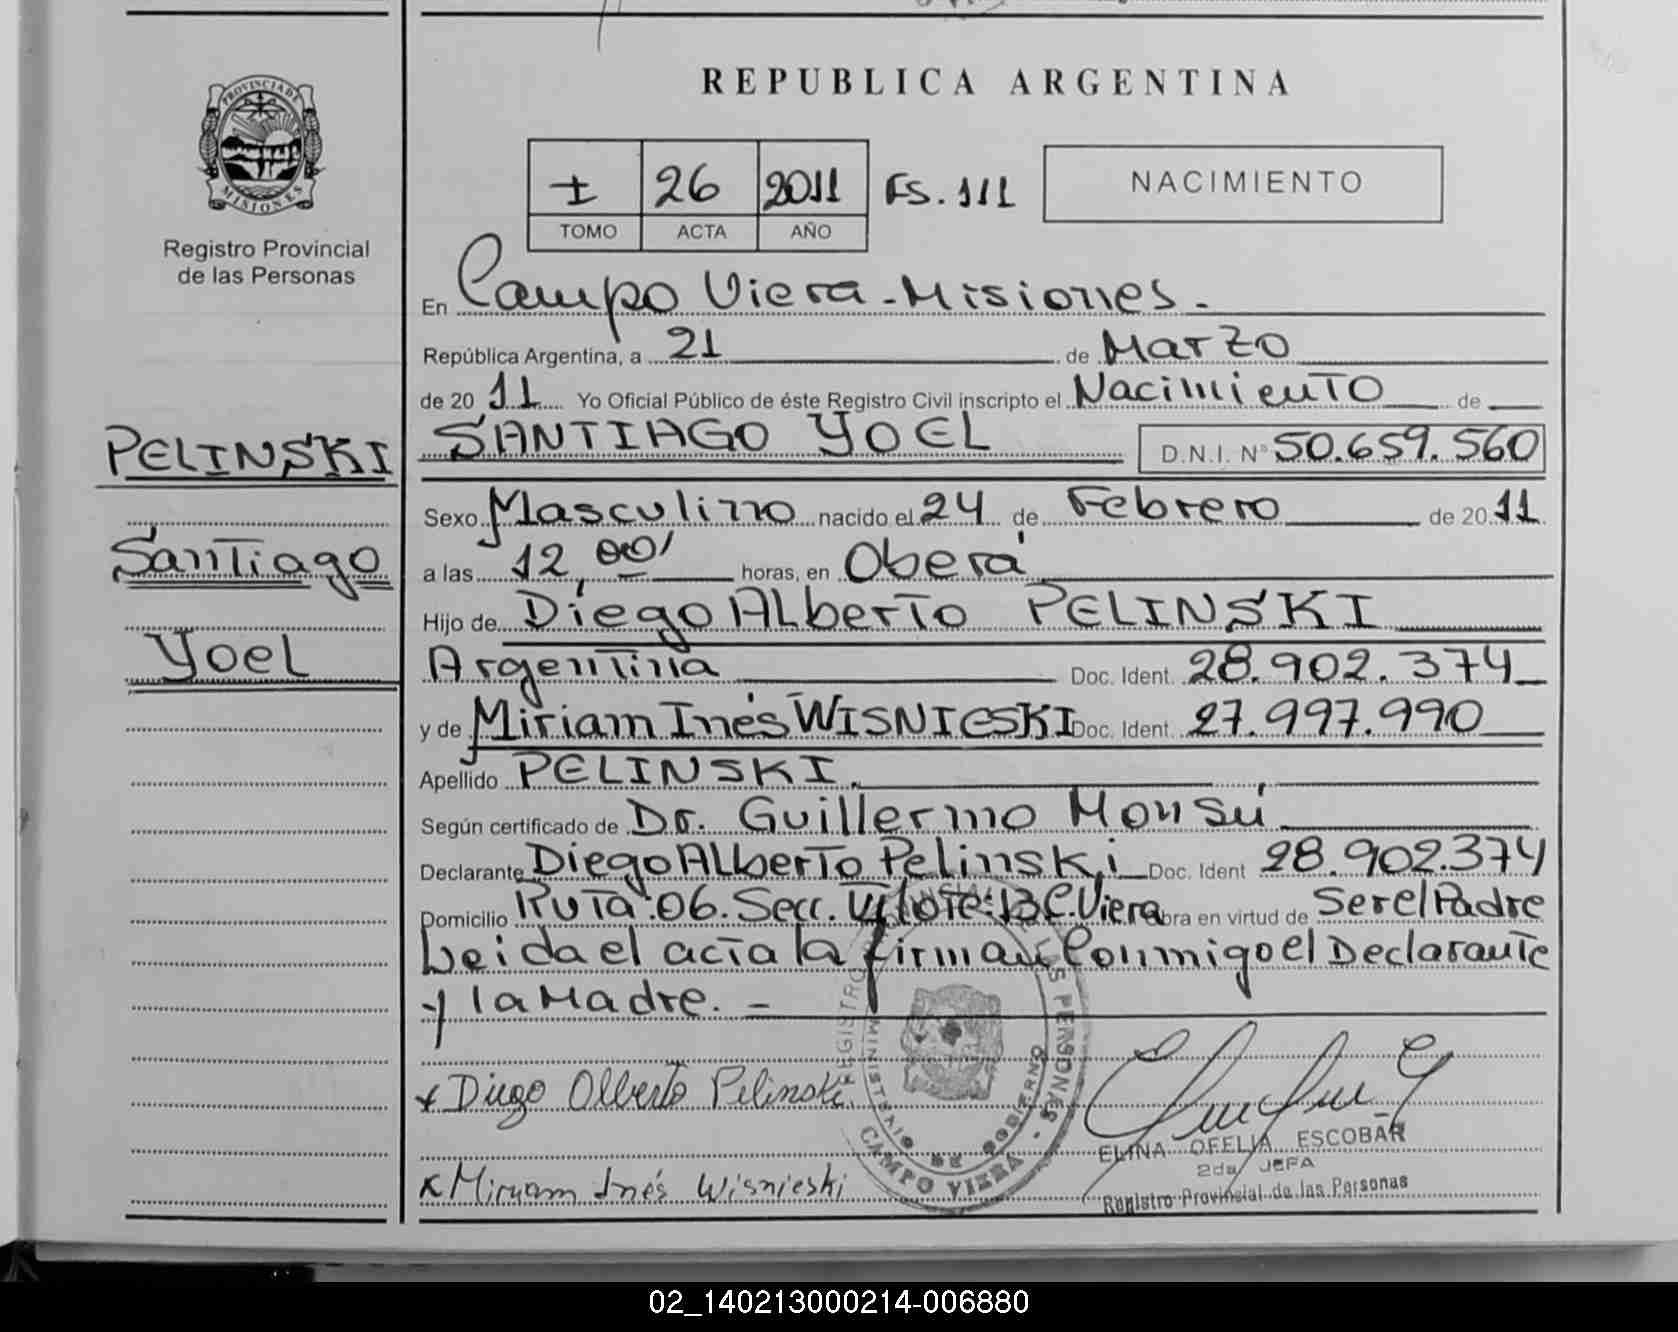 REPUBLICA ARGENTINA
PROVINCIA DE
MISIONES
Registro Provincial
de las Personas
I 26 2011 FS. 111
TOMO ACTA AÑO
NACIMIENTO
En Campo Viera - Misiones -
República Argentina, a 21 de Marzo
de 2011 Yo Oficial Público de éste Registro Civil inscripto el Nacimiento de
PELINSKI
SANTIAGO YOEL D.N.I. Nº 50.659.560
Sexo Masculino nacido el 24 de Febrero de 2011
Santiago
a las 12,00' horas, en Oberá
Hijo de Diego Alberto PELINSKI
Yoel
Argentina Doc. Ident. 28.902.374
y de Miriam Inés WISNIESKI Doc. Ident. 27.997.990
Apellido PELINSKI.
Según certificado de Dr. Guillermo Monsú
Declarante Diego Alberto Pelinski Doc. Ident 28.902.374
Domicilio Ruta 06. Secc. VI lote: 13 C. Viera bra en virtud de Ser el Padre
Leida el acta la firman Conmigo el Declarante
y la Madre. -
x Diego Alberto Pelinski
x Miryam Inés Wisnieski
REGISTRO PROVINCIAL DE LAS PERSONAS -
MINISTERIO DE GOBIERNO
CAMPO VIERA
ELINA OFELIA ESCOBAR
2da JEFA
Registro Provincial de las Personas
02_140213000214-006880